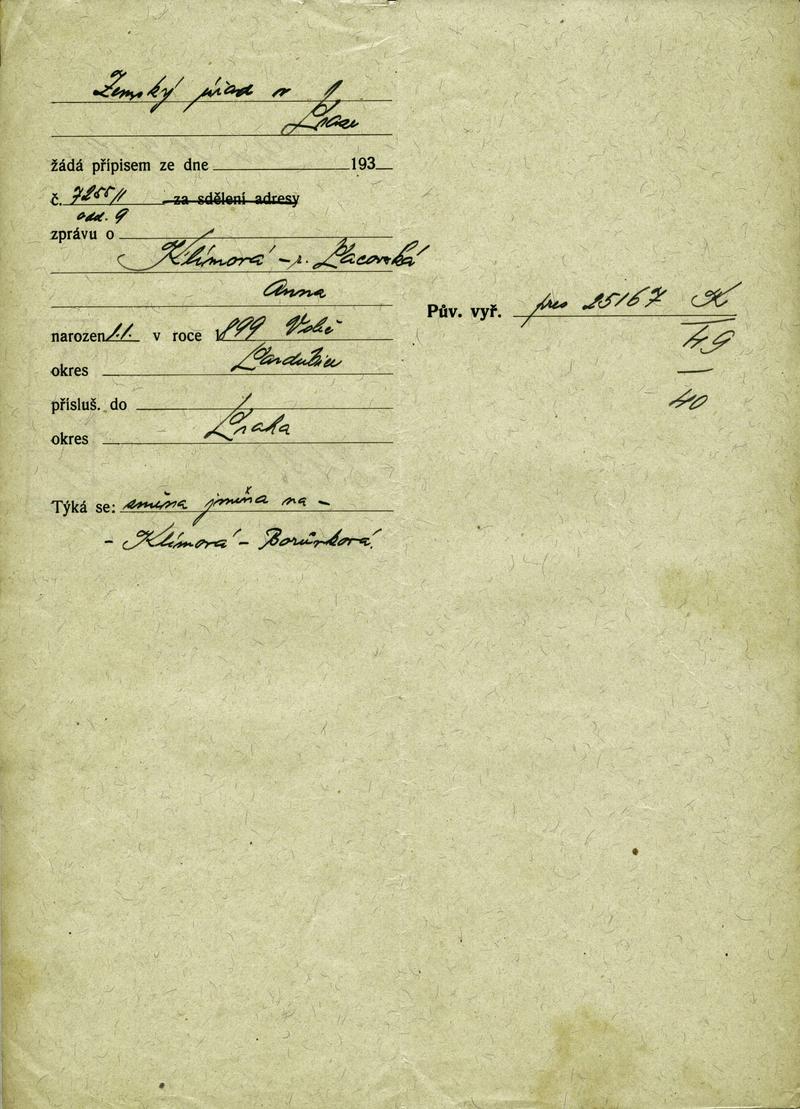 Zemský úřad v
Praze
žádá přípisem ze dne 193
č. 7255/1 za sdělení adresy
odd. 9
zprávu o
Klímová - r. Placovská
Anna
narozen 1.1. v roce 1899 Volč
okres Pardubice
přísluš. do
okres Praha
Týká se: změna jména na -
- Klímová - Borůvková.
Pův. vyř. pres 25167 K
49
40